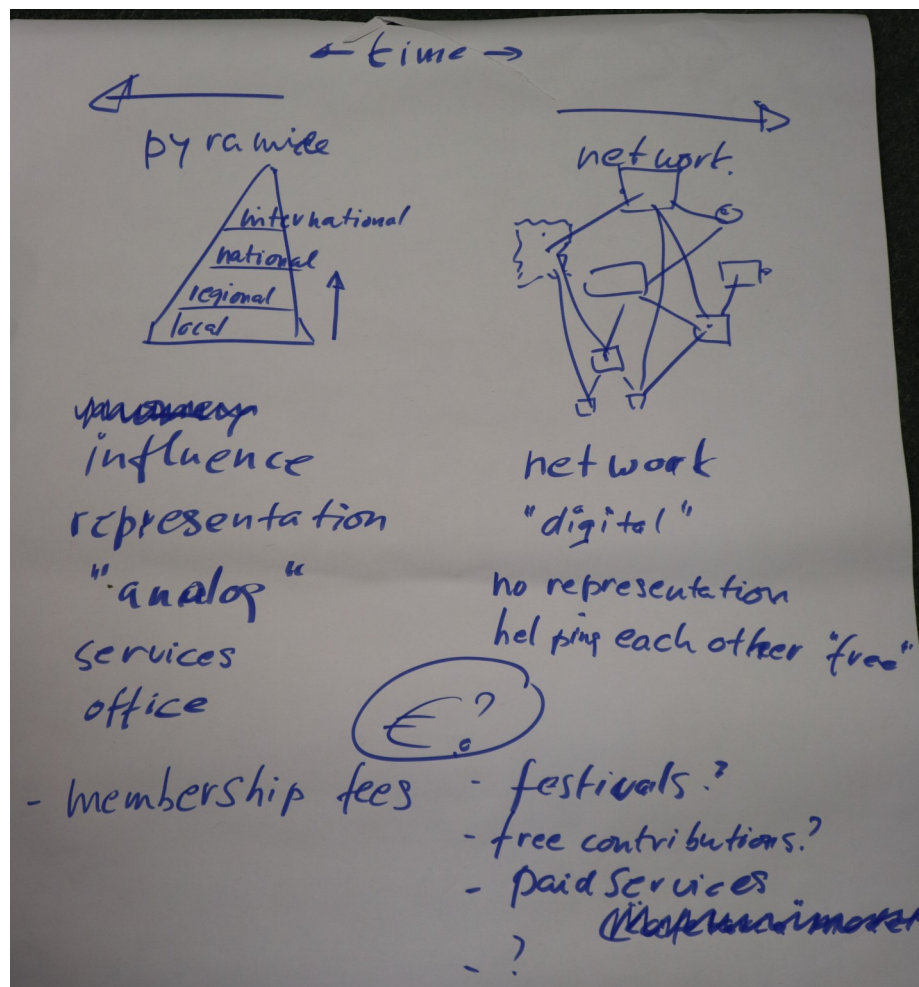 ← time →
pyramide
international
national
regional
local
influence
representation
"analog"
services
office
- membership fees
network.
network
"digital"
no representation
helping each other "free"
€?
- festivals?
- free contributions?
- paid services
- ?